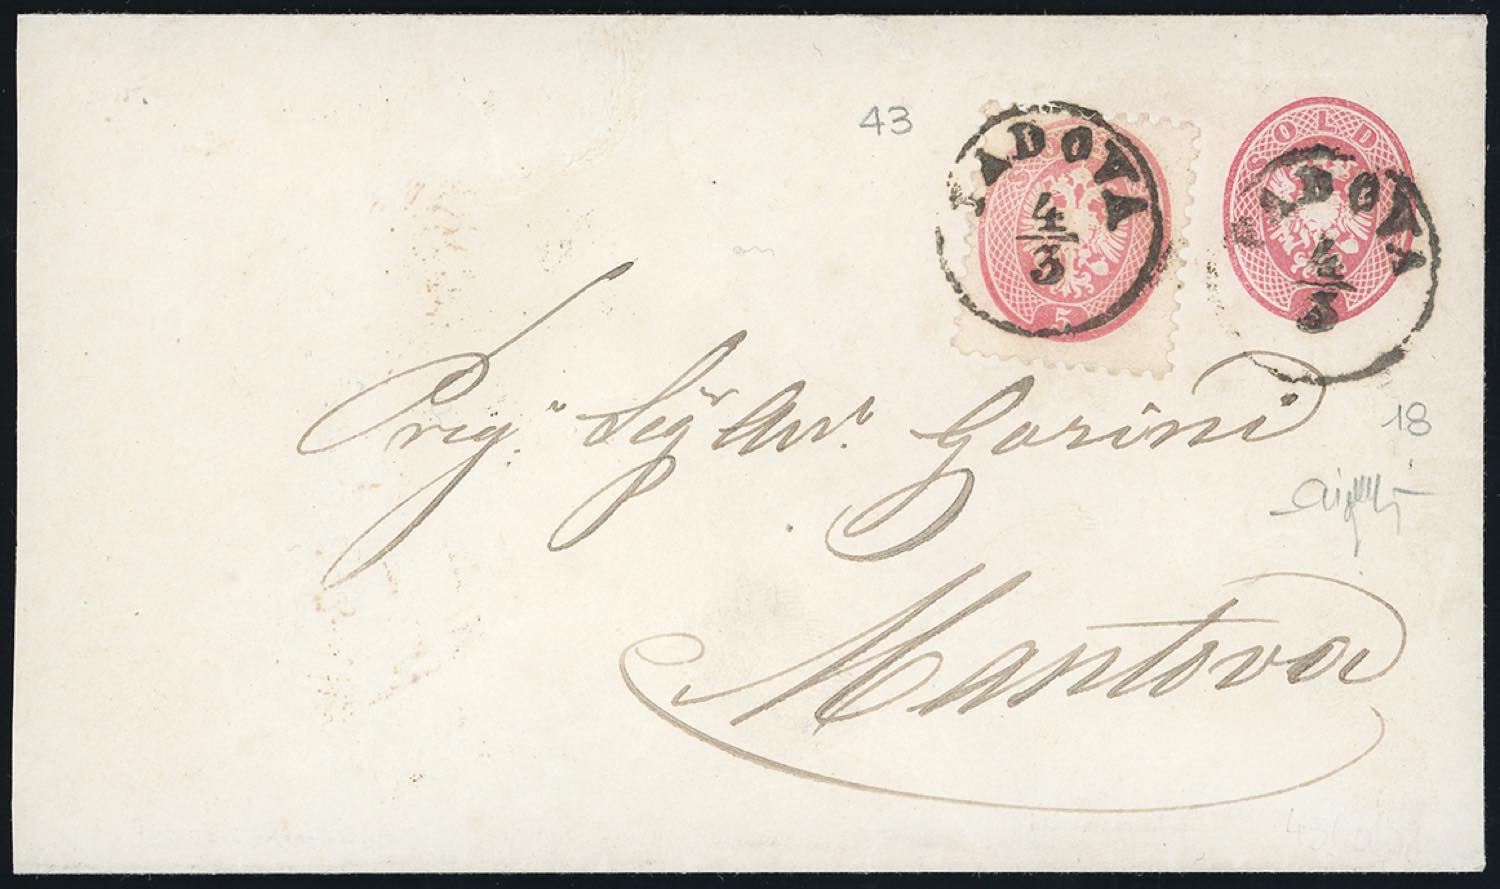 43
PADOVA
4
3
5
SOLDI
PADOVA
4
3
Preg.º Sigr Avv.º Gorini
18
Mantova